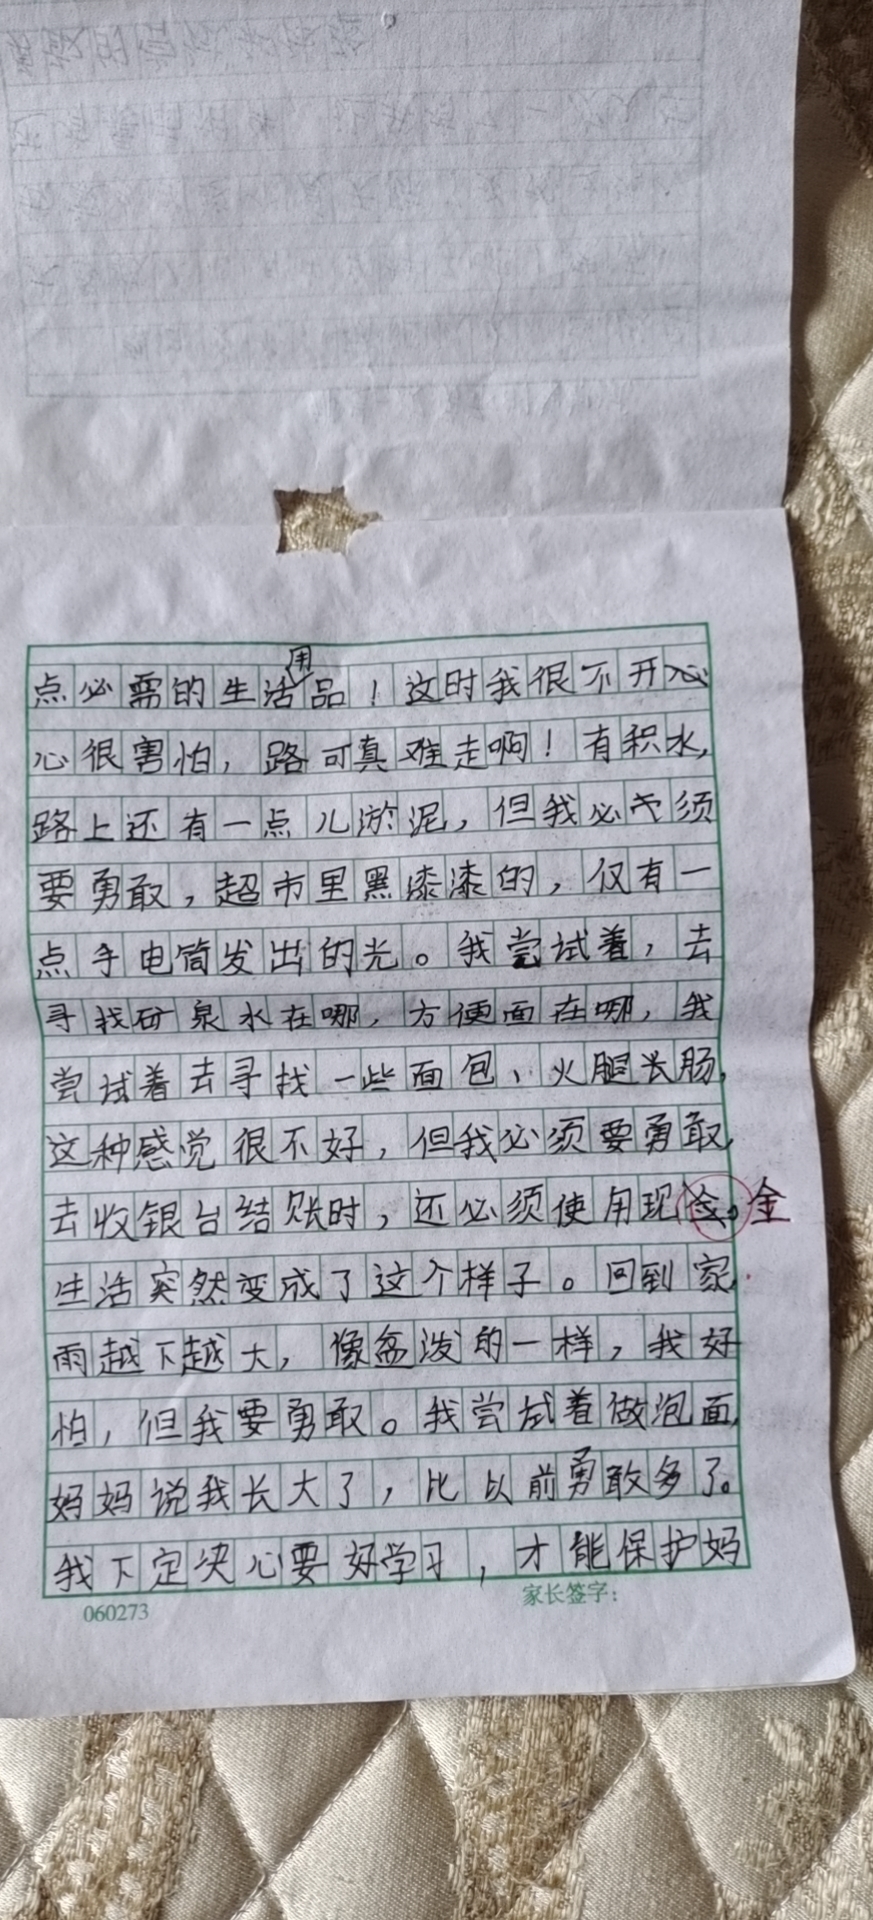 点必需的生活用品！这时我很不开心
心很害怕，路可真难走啊！有积水，
路上还有一点儿淤泥，但我必须
要勇敢，超市里黑漆漆的，仅有一
点手电筒发出的光。我尝试着，去
寻找矿泉水在哪，方便面在哪，我
尝试着去寻找一些面包、火腿长肠，
这种感觉很不好，但我必须要勇敢，
去收银台结账时，还必须使用现。金
生活突然变成了这个样子。回到家，
雨越下越大，像盆泼的一样，我好
怕，但我要勇敢。我尝试着做泡面，
妈妈说我长大了，比以前勇敢多了。
我下定决心要好学习，才能保护妈
060273 家长签字：